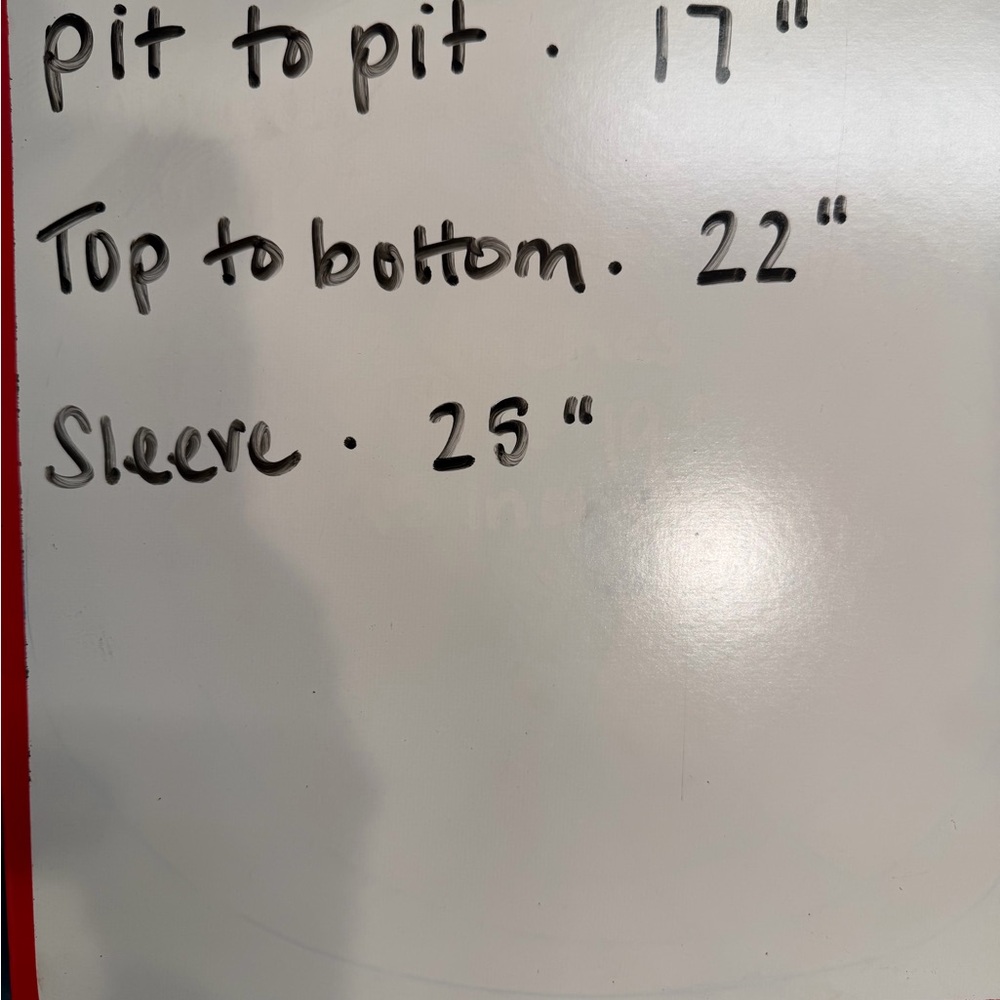 pit to pit . 17"
Top to bottom. 22"
Sleeve . 25"